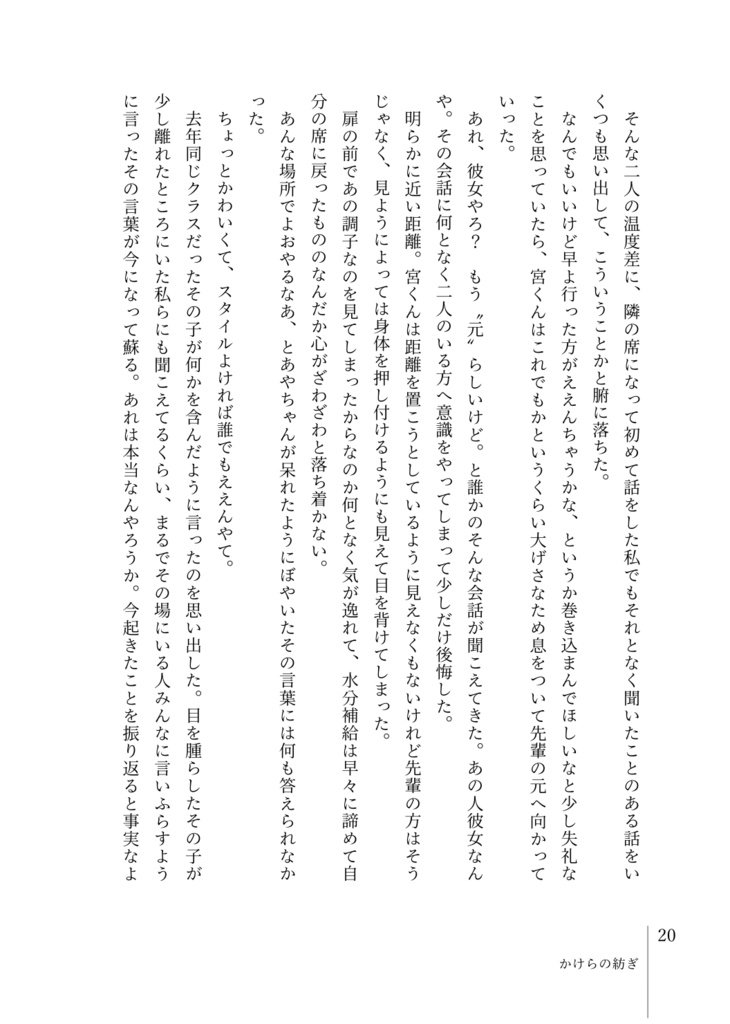 そんな二人の温度差に、隣の席になって初めて話をした私でもそれとなく聞いたことのある話をい
くつも思い出して、こういうことかと腑に落ちた。
なんでもいいけど早よ行った方がええんちゃうかな、というか巻き込まんでほしいなと少し失礼な
ことを思っていたら、宮くんはこれでもかというくらい大げさなため息をついて先輩の元へ向かって
いった。
あれ、彼女やろ？　もう〝元〟らしいけど。と誰かのそんな会話が聞こえてきた。あの人彼女なん
や。その会話に何となく二人のいる方へ意識をやってしまって少しだけ後悔した。
明らかに近い距離。宮くんは距離を置こうとしているように見えなくもないけれど先輩の方はそう
じゃなく、見ようによっては身体を押し付けるようにも見えて目を背けてしまった。
扉の前であの調子なのを見てしまったからなのか何となく気が逸れて、水分補給は早々に諦めて自
分の席に戻ったもののなんだか心がざわざわと落ち着かない。
あんな場所でよおやるなあ、とあやちゃんが呆れたようにぼやいたその言葉には何も答えられなか
った。
ちょっとかわいくて、スタイルよければ誰でもええんやて。
去年同じクラスだったその子が何かを含んだように言ったのを思い出した。目を腫らしたその子が
少し離れたところにいた私らにも聞こえてるくらい、まるでその場にいる人みんなに言いふらすよう
に言ったその言葉が今になって蘇る。あれは本当なんやろうか。今起きたことを振り返ると事実なよ
20
かけらの紡ぎ